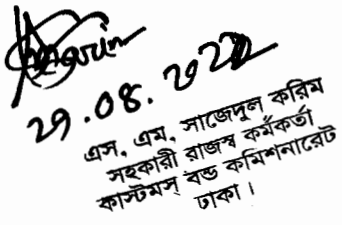 ২৭.০৪.২০২২
এস, এম, সাজেদুল করিম
সহকারী রাজস্ব কর্মকর্তা
কাস্টমস্ বন্ড কমিশনারেট
ঢাকা।